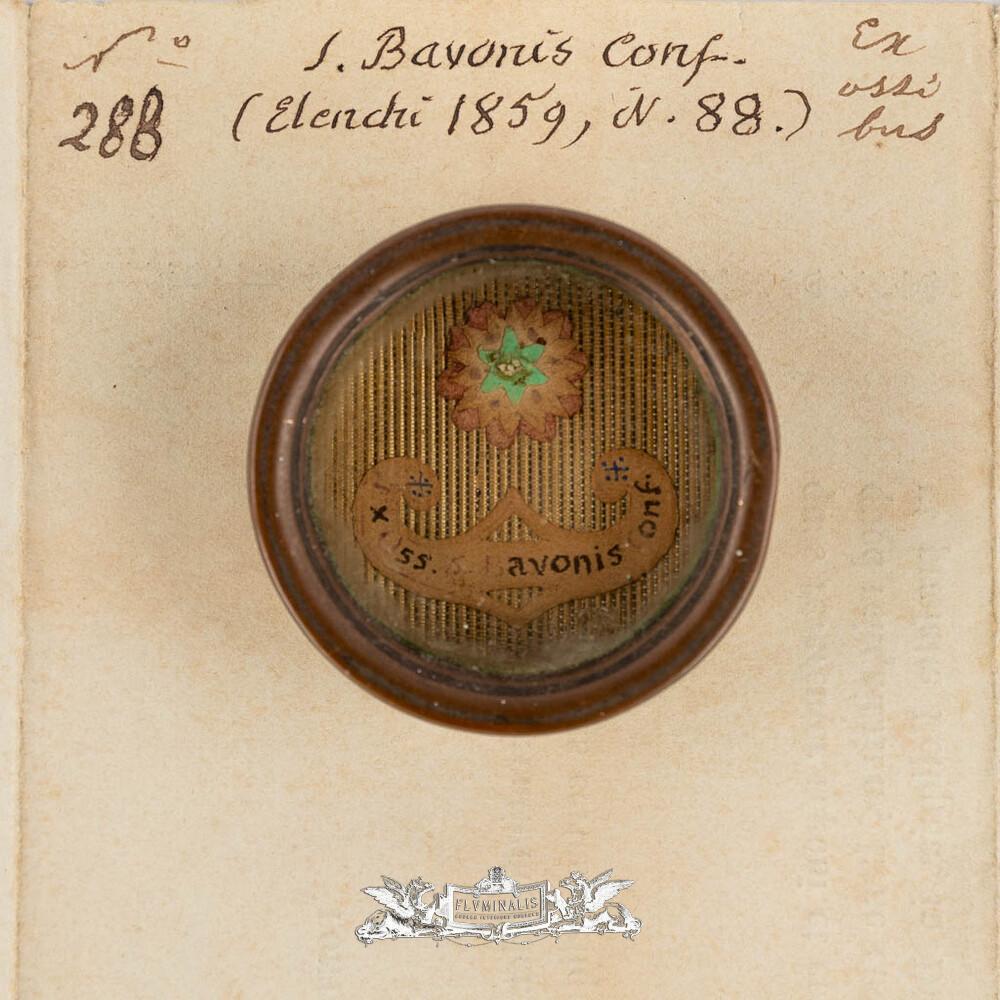 Nº
288
S. Bavonis Conf.
(Elenchi 1859, N. 88.)
Ex
ossi
bus
x ss. S. Bavonis Conf.
FLVMINALIS